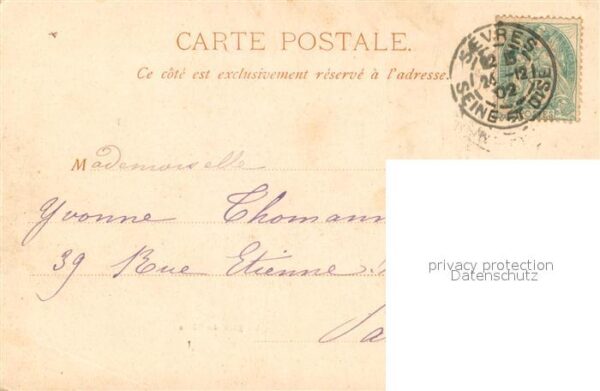 CARTE POSTALE.
Ce côté est exclusivement réservé à l'adresse.
SÈVRES
26 12
02
SEINE-ET-OISE
Mademoiselle
Yvonne Thomann
39 Rue Etienne
privacy protection
Datenschutz